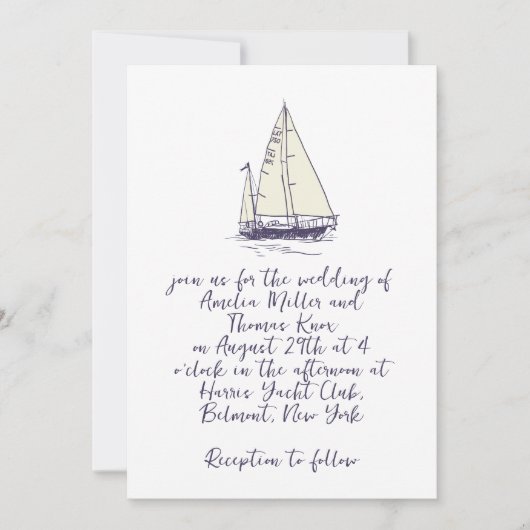 join us for the wedding of
Amelia Miller and
Thomas Knox
on August 29th at 4
o'clock in the afternoon at
Harris Yacht Club,
Belmont, New York
Reception to follow